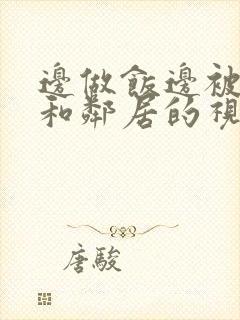 邊做飯邊被
和鄰居的視
唐駿